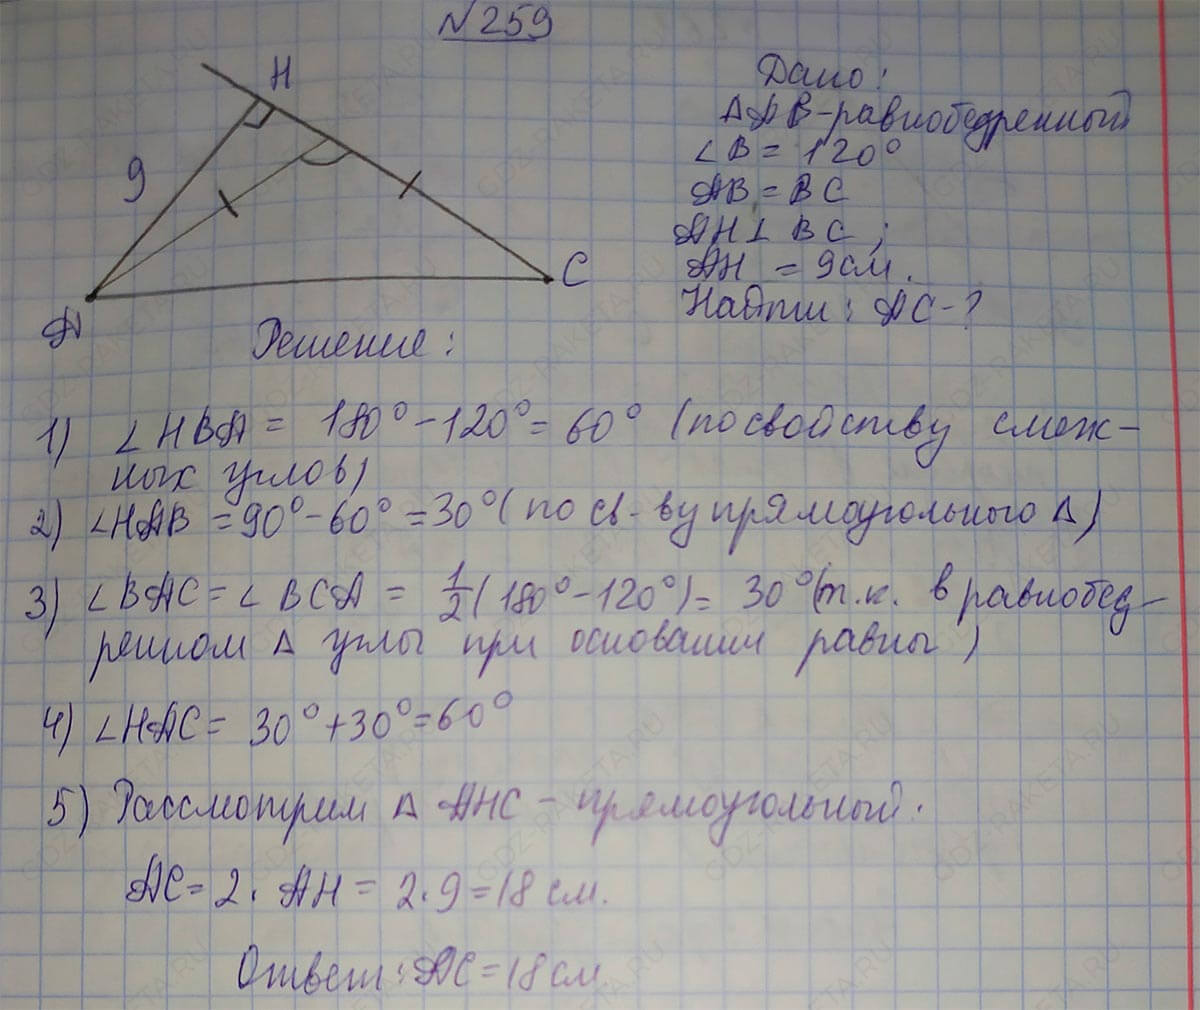 №259
H
9
A
C
Дано:
∆ AB-равнобедренный
∠B = 120°
AB = BC
AH ⊥ BC;
AH = 9 см.
Найти: AC-?
Решение:
1) ∠HBA = 180°-120°= 60° (по свойству смеж-
ных углов)
2) ∠HAB = 90°-60°=30° (по св-ву прямоугольного ∆)
3) ∠BAC=∠BCA = 1/2(180°-120°)= 30° (т.к. в равнобед-
ренном ∆ углы при основании равны)
4) ∠HAC= 30°+30°=60°
5) Рассмотрим ∆ AHC - прямоугольный:
AC= 2· AH = 2·9=18 см.
Ответ: AC=18см
GDZ-RAKETA.RU